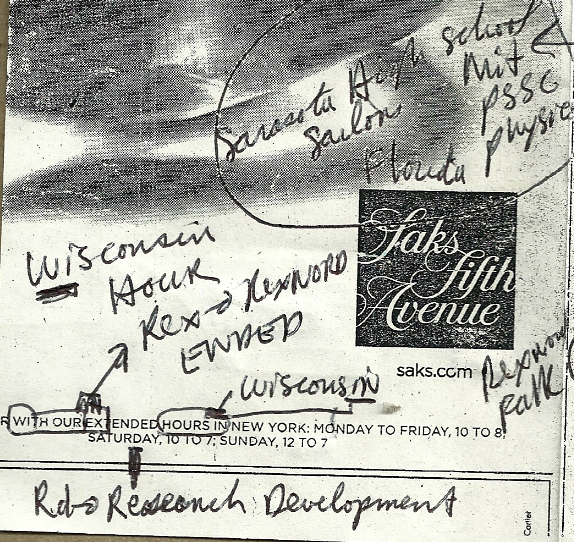 Sarasota High School
Sailors
Mit
PSSC
Physics
Florida
Saks
fifth
Avenue
saks.com
Wisconsin
HOUR
Rex→ REXNORD
ENDED
WISCONSIN
R WITH OUR EXTENDED HOURS IN NEW YORK: MONDAY TO FRIDAY, 10 TO 8;
SATURDAY, 10 TO 7; SUNDAY, 12 TO 7
Rd→ Research Development
Cartier